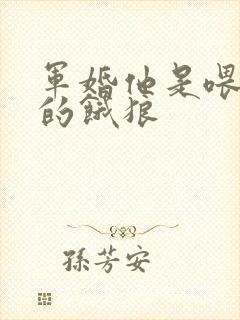 軍婚他是喂
的餓狼
孫芳安